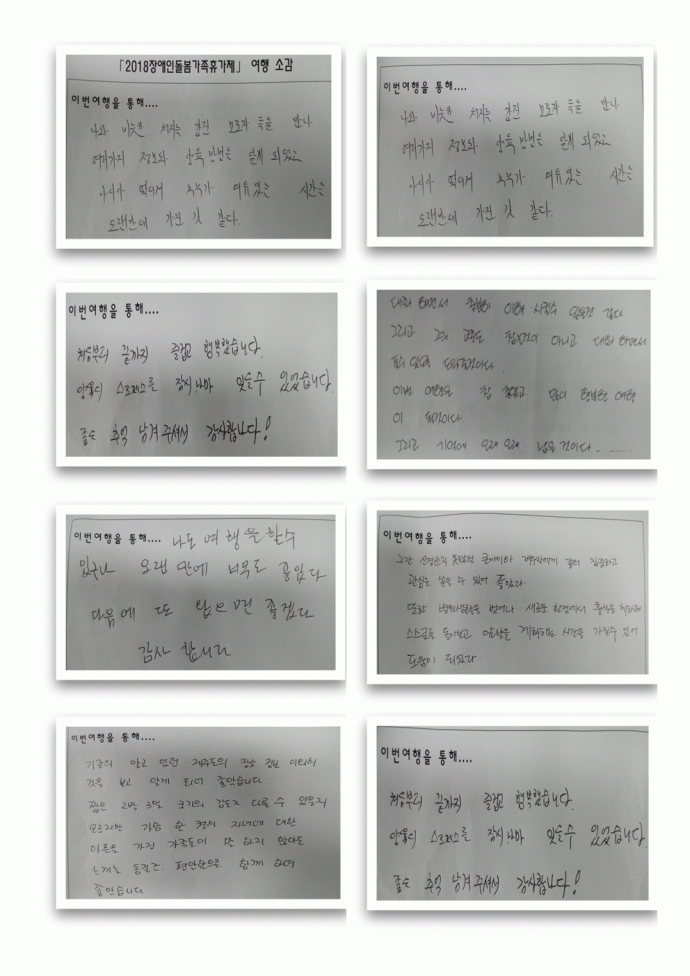 「2018장애인돌봄가족휴가제」 여행 소감
이번여행을 통해....
나와 비슷한 처지를 가진 보호자 들을 만나
여러가지 정보와 양육 방법을 알게 되었고
떨어져 부부가 여유있는 시간을
오랜만에 가진 것 같다.
이번여행을 통해....
나와 비슷한 처지를 가진 보호자 들을 만나
여러가지 정보와 양육 방법을 알게 되었고
떨어져 부부가 여유있는 시간을
오랜만에 가진 것 같다.
이번여행을 통해....
처음부터 끝까지 즐겁고 행복했습니다.
스트레스를 잠시나마 잊을수 있었습니다.
좋은 추억 남겨주셔서 감사합니다!
대화 하면서 충분히 이해 시킬수 있을것 같다
그리고 아니고 대화 하면서
이번 여행은 참 즐겁고. 많이 행복한 여행
이 될것이다
그리고 기억에 오래 오래 남을 것이다. ......
이번여행을 통해.... 나도 여행을 할수
있구나 오랜만에 너무도 좋았다
다음에 또 있으면 좋겠다
감사 합니다
이번여행을 통해....
그간 신경쓰지 못했던 큰아이와
관심을 쏟을 수 있어 좋았다.
또한 벗어나 새로운 환경에서
스스로를 돌아보고 계획하는 시간을 가질수 있어
도움이 되었다.
이번여행을 통해....
기존의 알고 있던 제주도의 장소, 정보 이외의
것을 보고 알게 되어 좋았습니다
짧은 2박 3일 크기의 다를 수 있을지
모르지만 가슴 한 켠의 자녀에 대한
아픔을 가진 가족들이 말 하지 않아도
느끼는 동질감. 편안함으로 함께 하여
좋았습니다
이번여행을 통해....
처음부터 끝까지 즐겁고 행복했습니다.
스트레스를 잠시나마 잊을수 있었습니다.
좋은 추억 남겨주셔서 감사합니다!